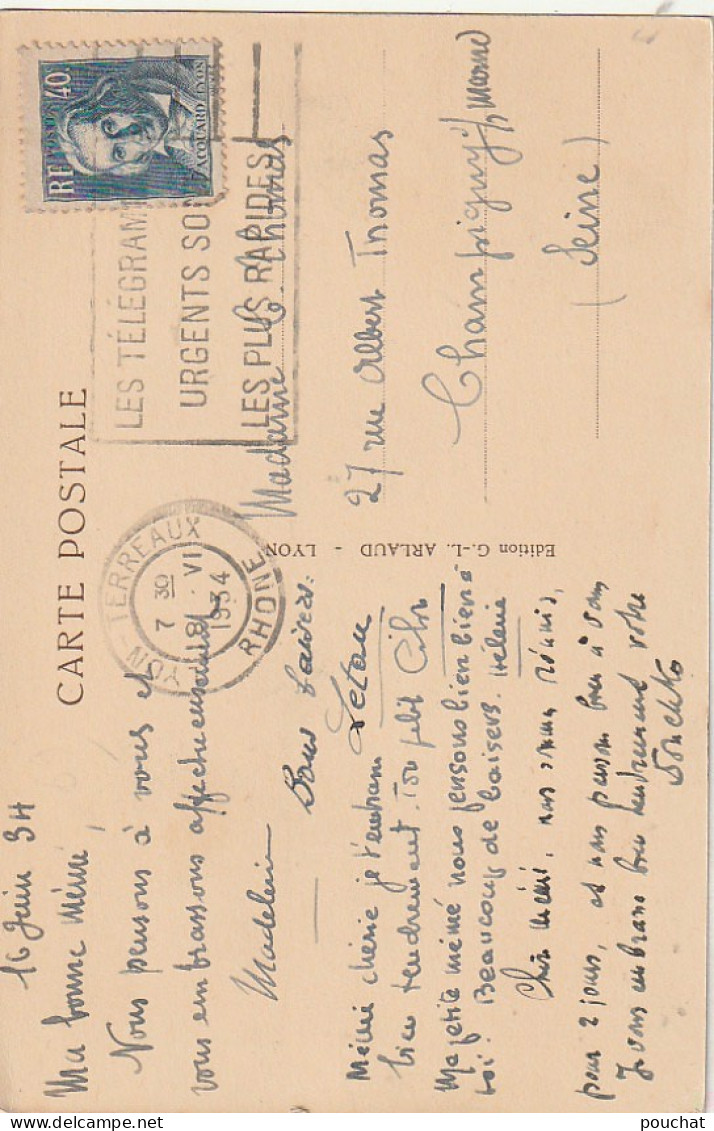 CARTE POSTALE
RF POSTES 40c
JACQUARD LYON
LES TÉLÉGRAM
URGENTS SO
LES PLUS RAPIDES
LYON-TERREAUX
7 30
18 VI
1934
RHONE
Edition G.-L. ARLAUD - LYON
Madame C. Thomas
27 rue Albert Thomas
Champigny s/ Marne
(Seine)
16 Juin 34
Ma bonne Mémé,
Nous pensons à vous et
vous embrassons affectueusement
Madeleine
Bons baisers.
Mémé chérie je t'embrasse
bien tendrement. Ton petit
Ma petite mémé nous pensons bien bien à
toi. Beaucoup de baisers. Hélène
Chère mémé, nous sommes réunis,
pour 2 jours, et nous pensons bien à vous
Je vous embrasse bien tendrement votre
pouchat